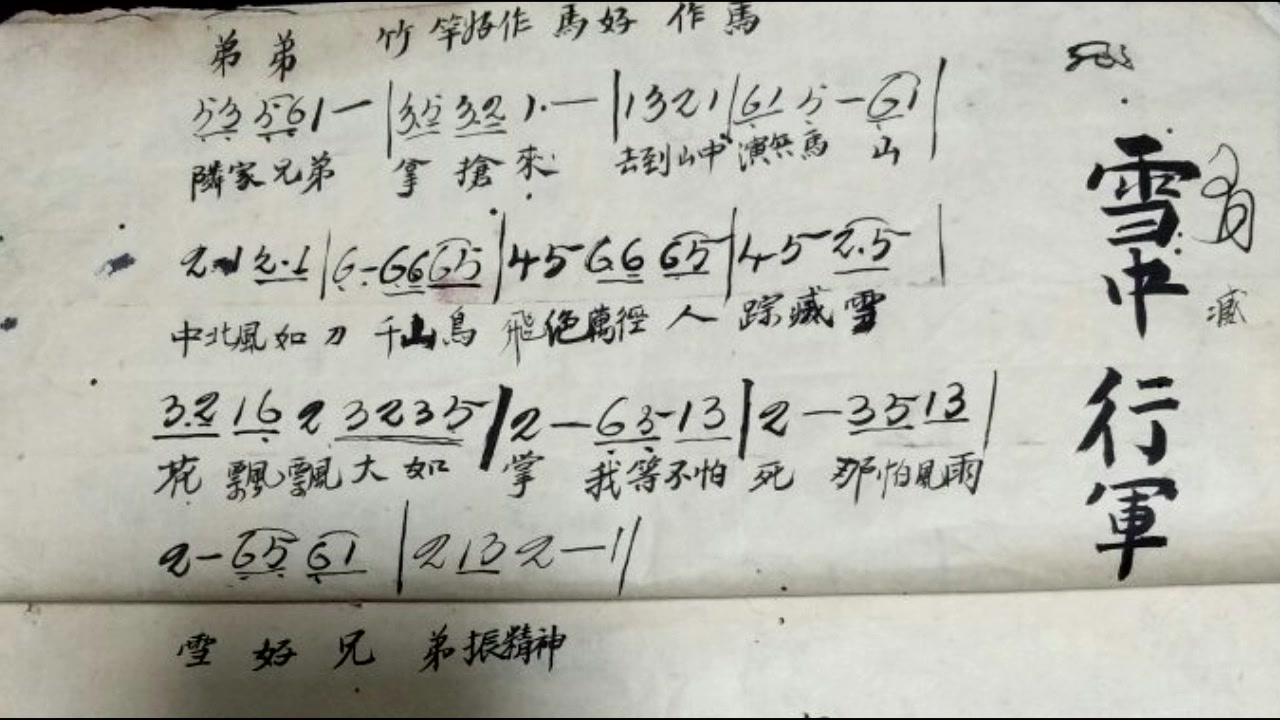 弟弟 竹竿好作馬好作馬
53 561 — | 35 32 1· — | 1321 | 61 5 — 61 |
隣家兄弟 拿搶來 去到山中演兵馬 山
2·1 2·1 | 6 - 6665 | 45 66 65 | 45 2·5 |
中北風如刀 千山鳥飛絶萬徑人踪威雪
3·2 16 2 3235 | 2 — 63 13 | 2 — 3513 |
花飄飄大如掌 我等不怕死 那怕風雨
2 — 65 61 | 213 2 — ||
雪好兄弟振精神
雪中行軍